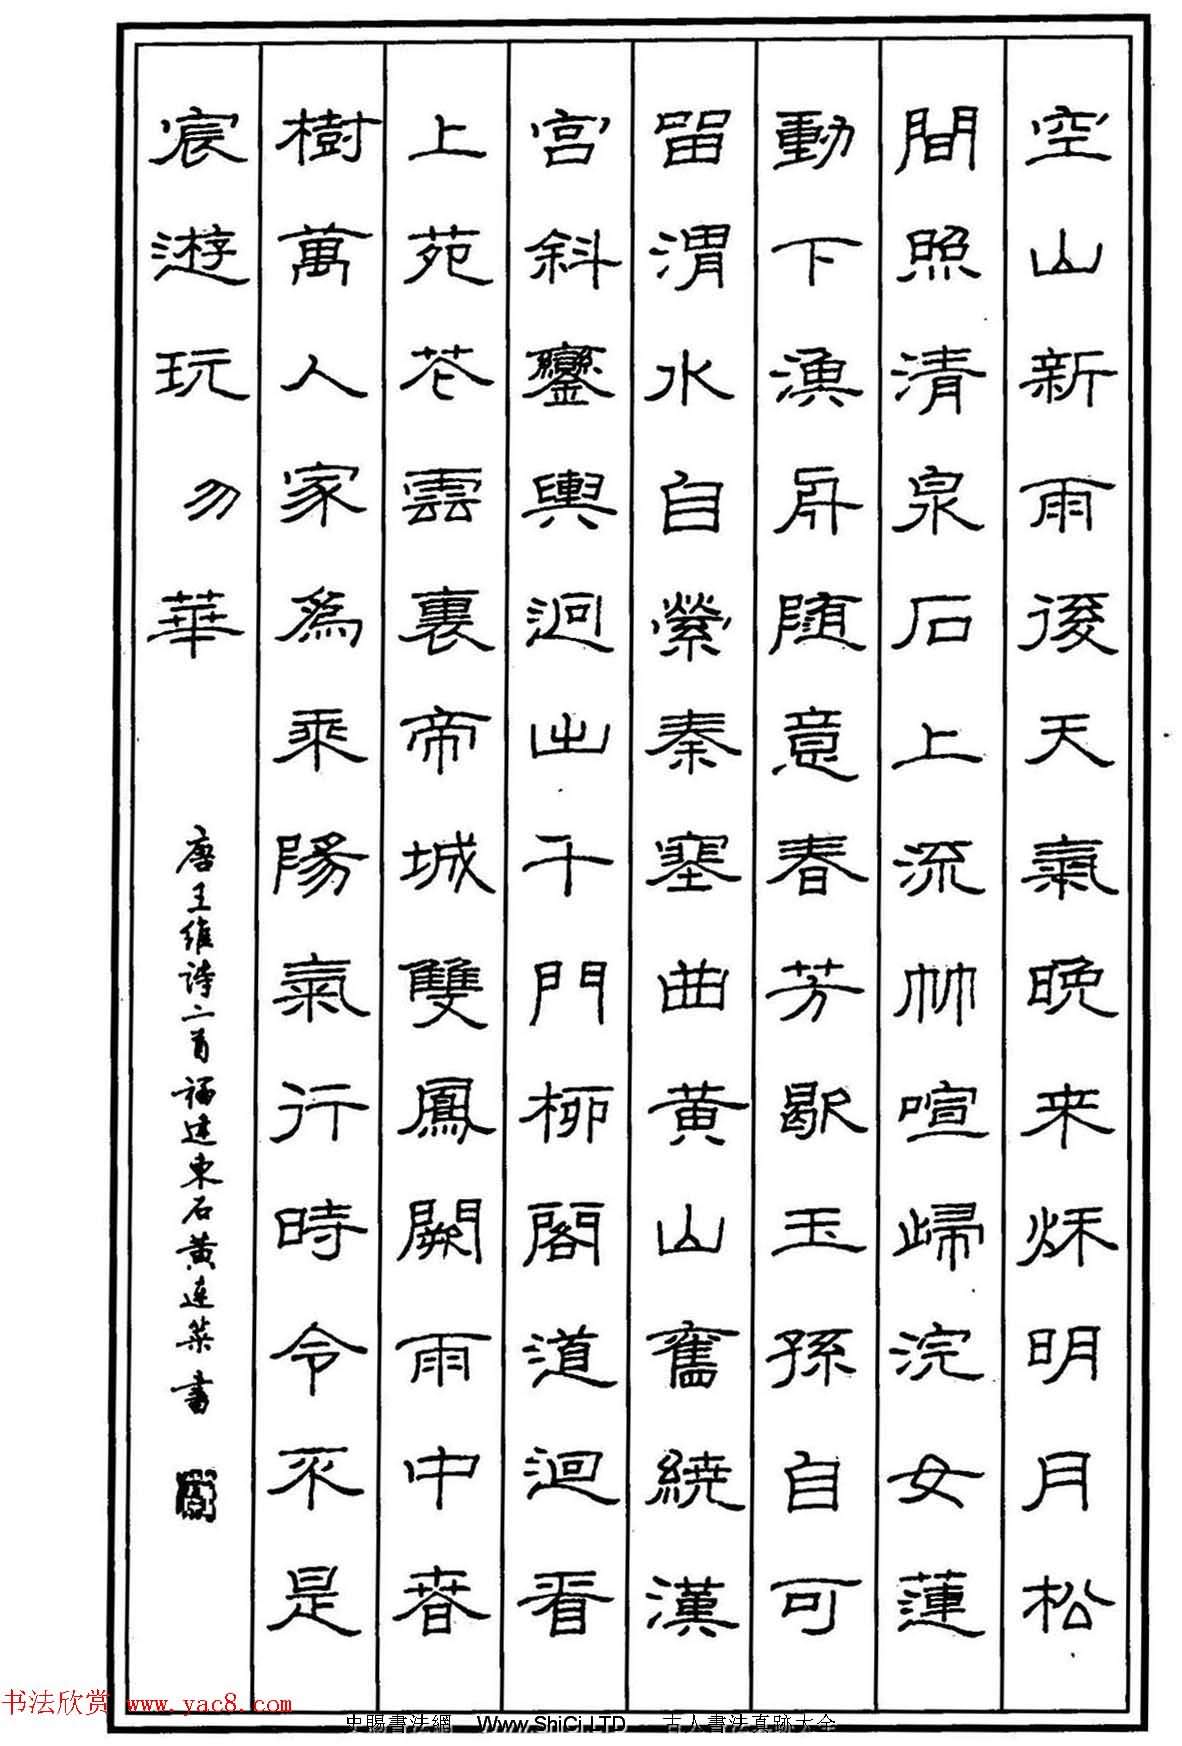 空山新雨後天氣晚来秌明月松
間照清泉石上流竹喧歸浣女蓮
動下漁舟随意春芳歇玉孫自可
留渭水自縈秦塞曲黄山舊繞漢
宮斜鑾輿迥出千門柳閣道迴看
上苑花雲裏帝城雙鳳闕雨中春
樹萬人家為乘陽氣行時令不是
宸遊玩勿華
唐王維詩二首福建東石黄連書
书法欣赏 www.yac8.com
史賜書法網 Www.ShiCi.LTD 古人書法真跡大全